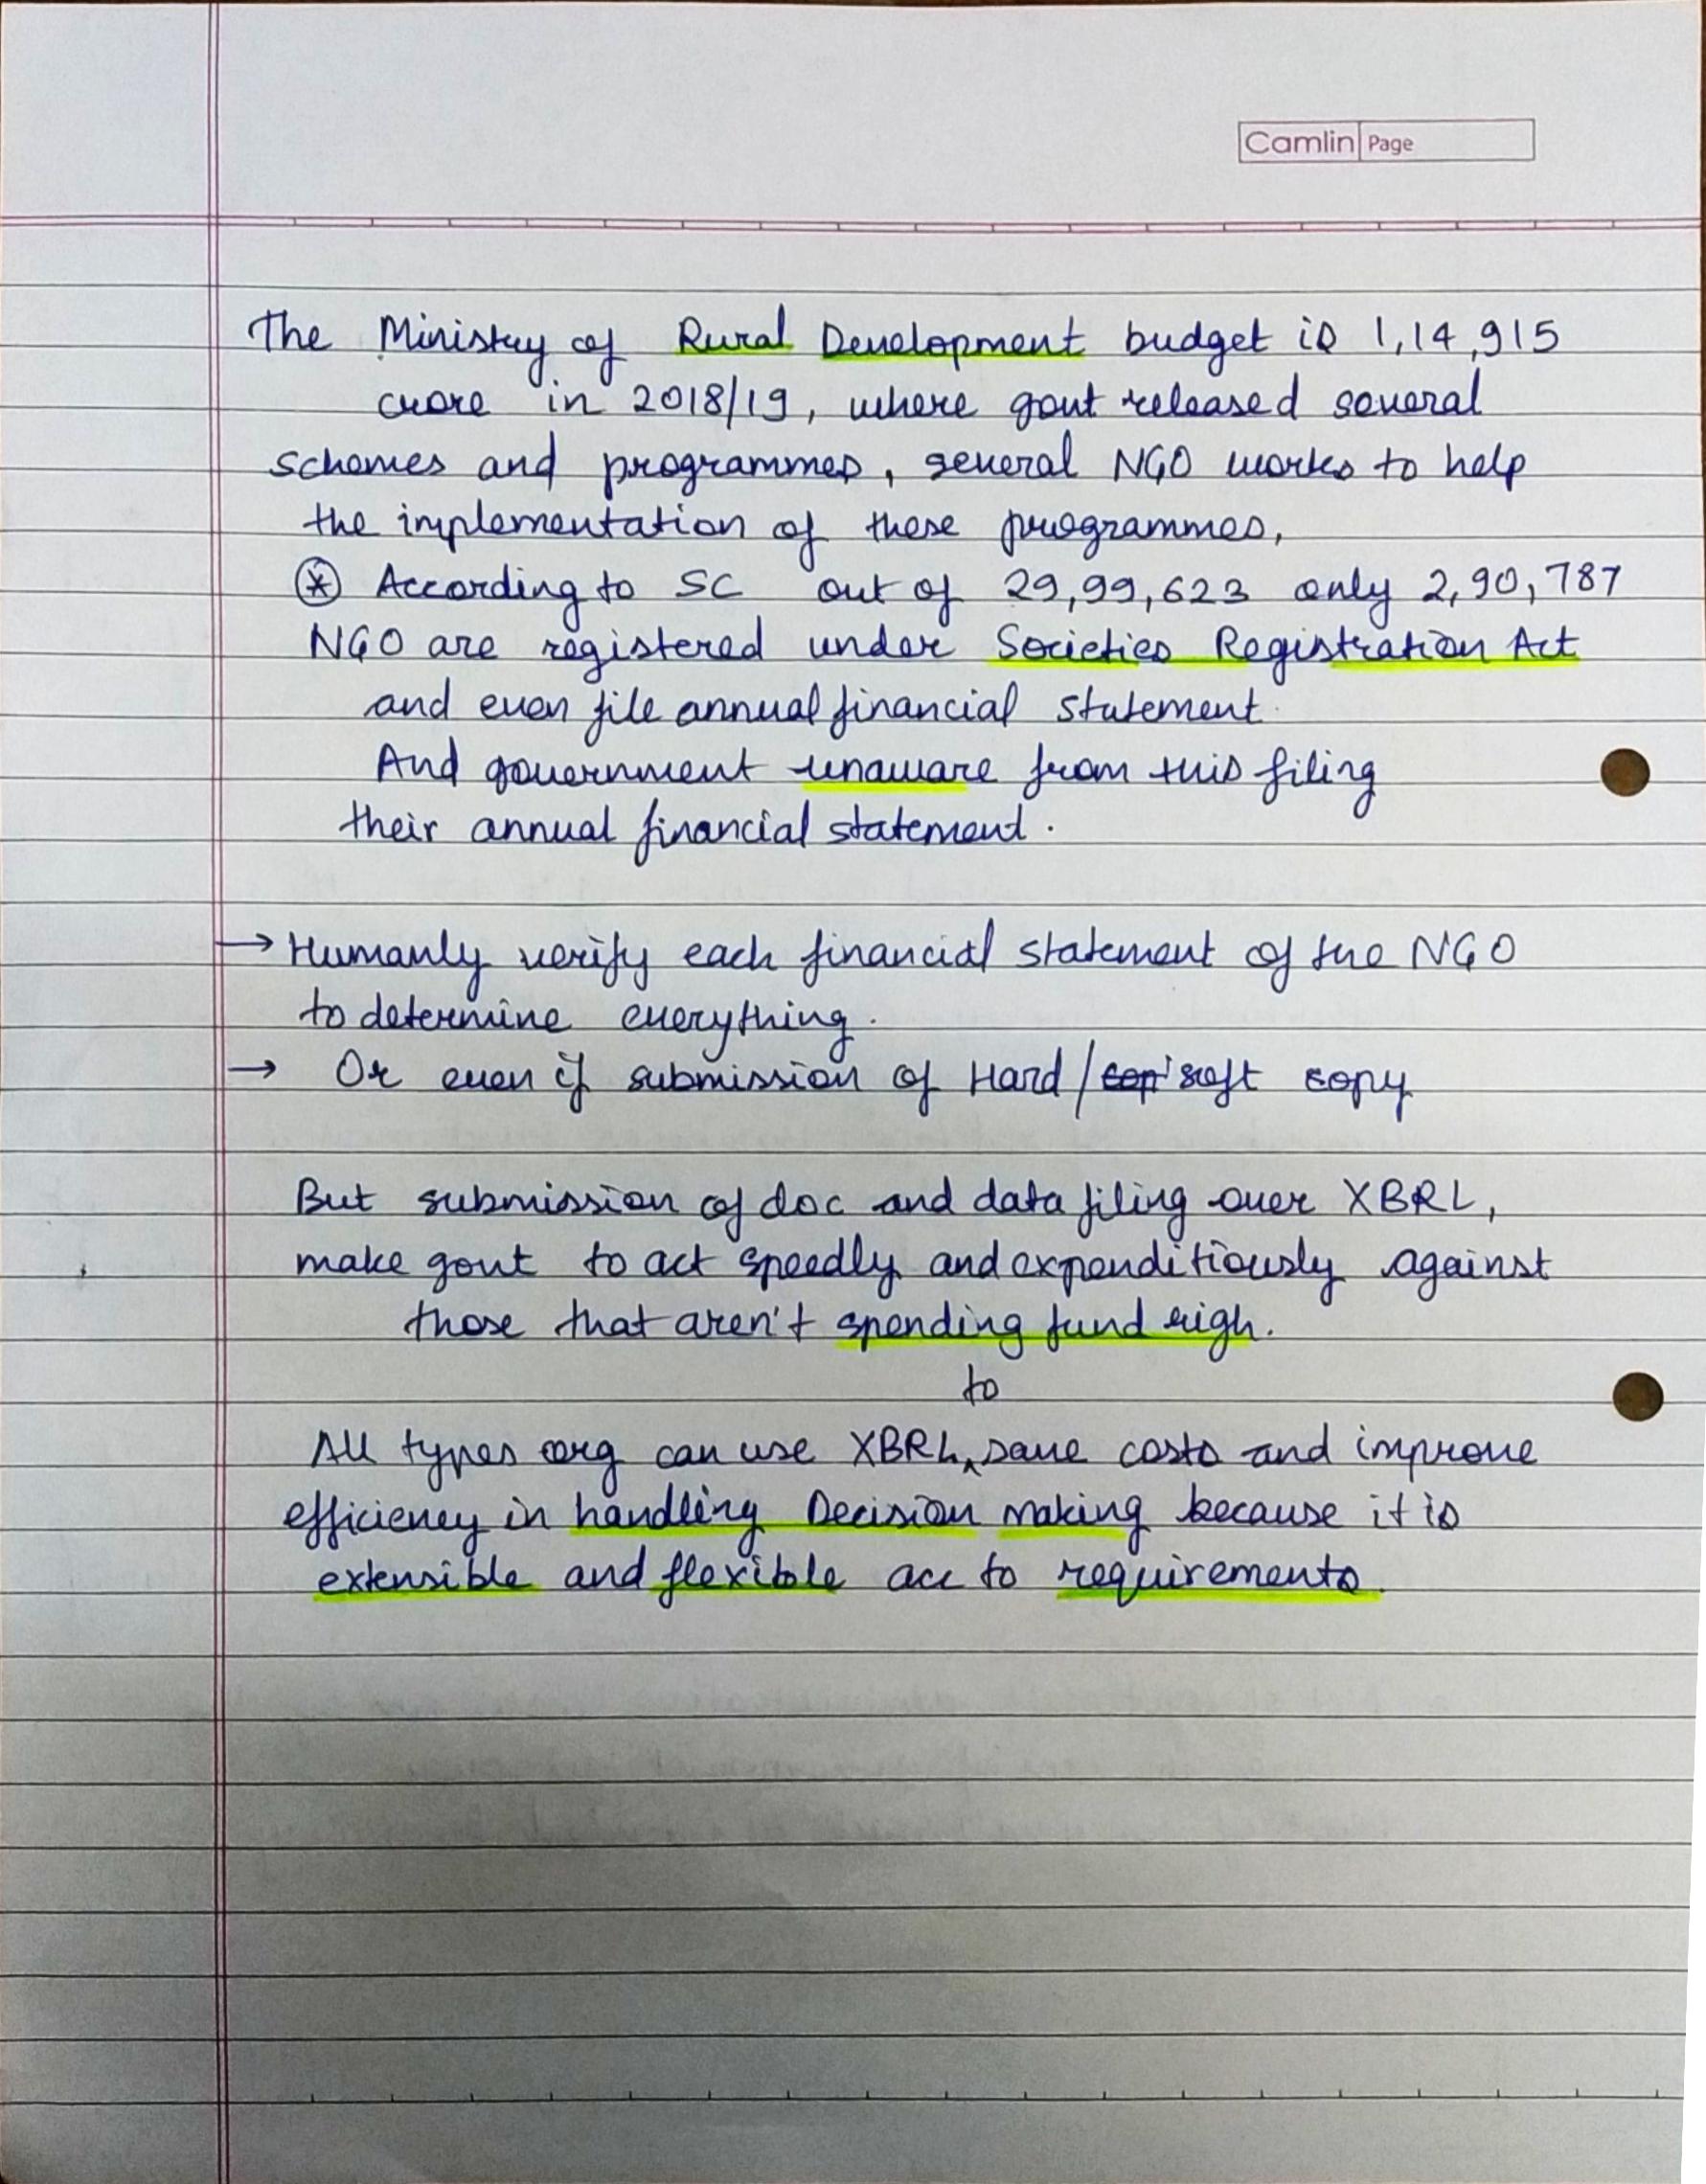 Camlin Page
The Ministry of Rural Development budget is 1,14,915
crore in 2018/19, where govt released several
schemes and programmes, several NGO works to help
the implementation of these programmes,
* According to SC out of 29,99,623 only 2,90,787
NGO are registered under Societies Registration Act
and even file annual financial statement.
And government unaware from this filing
their annual financial statement.
→ Humanly verify each financial statement of the NGO
to determine everything.
→ Or even if submission of Hard/soft copy
But submission of doc and data filing over XBRL,
make govt to act speedly and expenditiously against
those that aren't spending fund righ.
to
All types org can use XBRL, save costs and improve
efficieney in handling Decision making because it is
extensible and flexible acc to requirements.